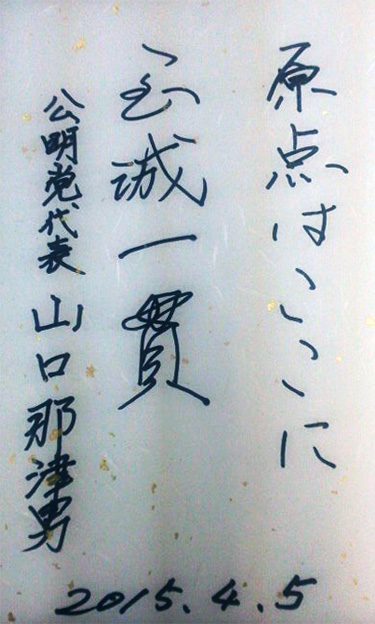 原点はここに
至誠一貫
公明党代表 山口那津男
2015.4.5